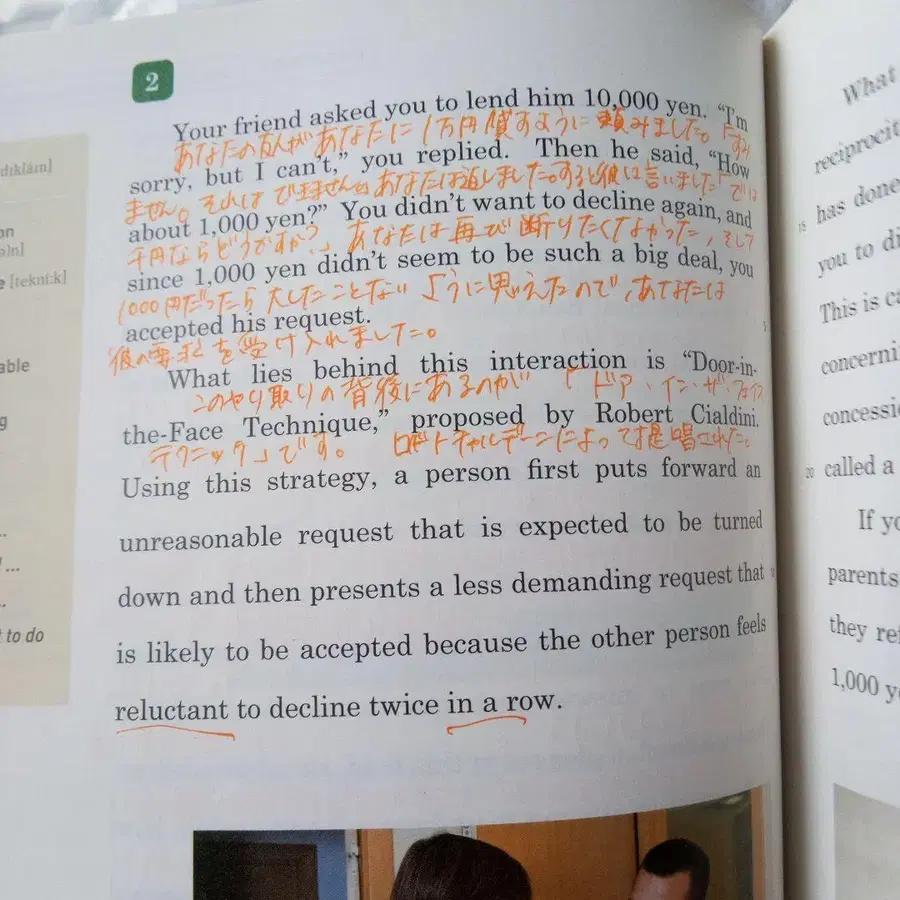 2
Your friend asked you to lend him 10,000 yen. "I'm
あなたの友人があなたに1万円貸すように頼みました。「すみ
sorry, but I can't," you replied. Then he said, "How
ません。それはできません」あなたは返しました。すると彼は言いました「では
about 1,000 yen?" You didn't want to decline again, and
千円ならどうですか?」あなたは再び断りたくなかった,そして
since 1,000 yen didn't seem to be such a big deal, you
1000円だったら大したことないように思えたので,あなたは
accepted his request.
彼の要求を受け入れました。
What lies behind this interaction is "Door-in-
このやり取りの背後にあるのが「ドア・イン・ザ・フェイス
the-Face Technique," proposed by Robert Cialdini.
テクニック」です。 によって提唱された。
Using this strategy, a person first puts forward an
unreasonable request that is expected to be turned
down and then presents a less demanding request that
is likely to be accepted because the other person feels
reluctant to decline twice in a row.
dɪklám]
on
[tekní:k]
able
g
...
...
t to do
5
What
reciprocit
15 has done
you to di
This is ca
concerni
concessi
20 called a
If yo
parents
they ref
1,000 y